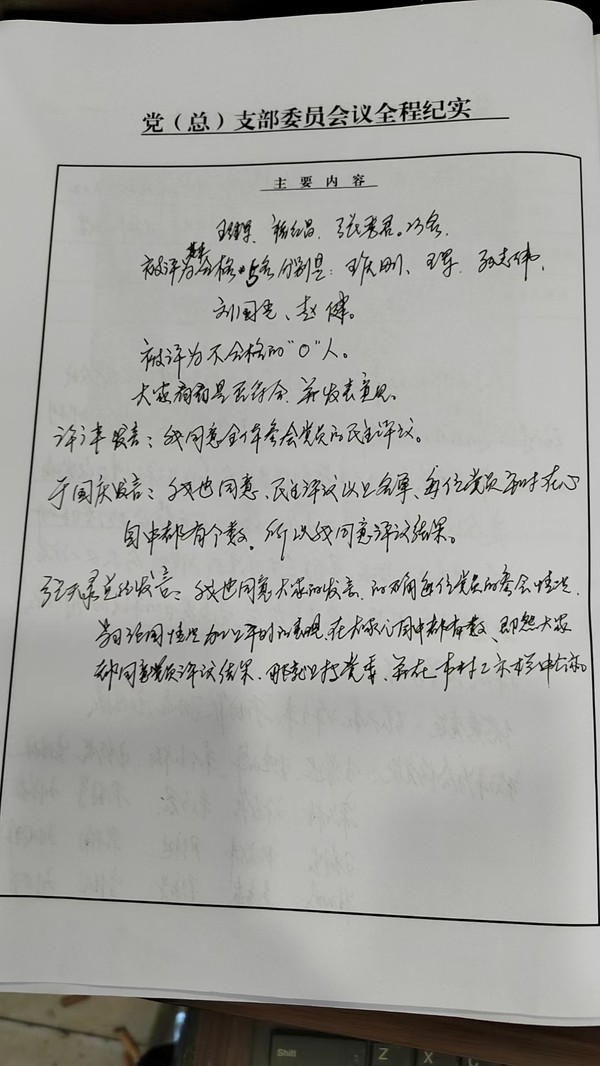 党（总）支部委员会议全程纪实
主要内容
张秀君。23名.
被评为基本合格的5名分别是：王庆刚、王军、孙志伟、
刘国忠、赵健。
被评为不合格的“0”人。
大家看看是否符合，并发表意见。
发言：我同意全体参会党员的民主评议。
于国庆发言：我也同意、民主评议以上名单、每位党员平时在心
目中都有个数，所以我同意评议结果。
发言：我也同意大家的发言、的确每位党员的参会情况、
学习活动情况加以平时的表现、在大家心目中都有数、既然大家
都同意党员评议结果，那就上报党委、并在本村公示栏中公示。
Shift
Z
X
C